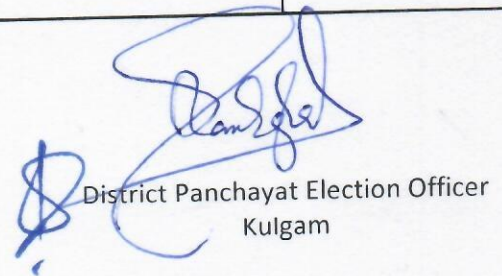 District Panchayat Election Officer
Kulgam